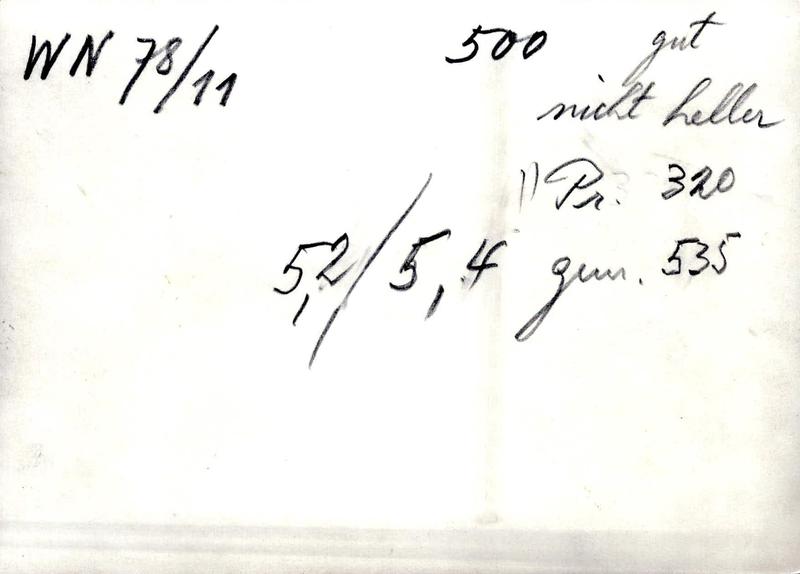 WN 78/11
500 gut
nicht heller
)) Pr. 320
5,2/5,4 gem. 535